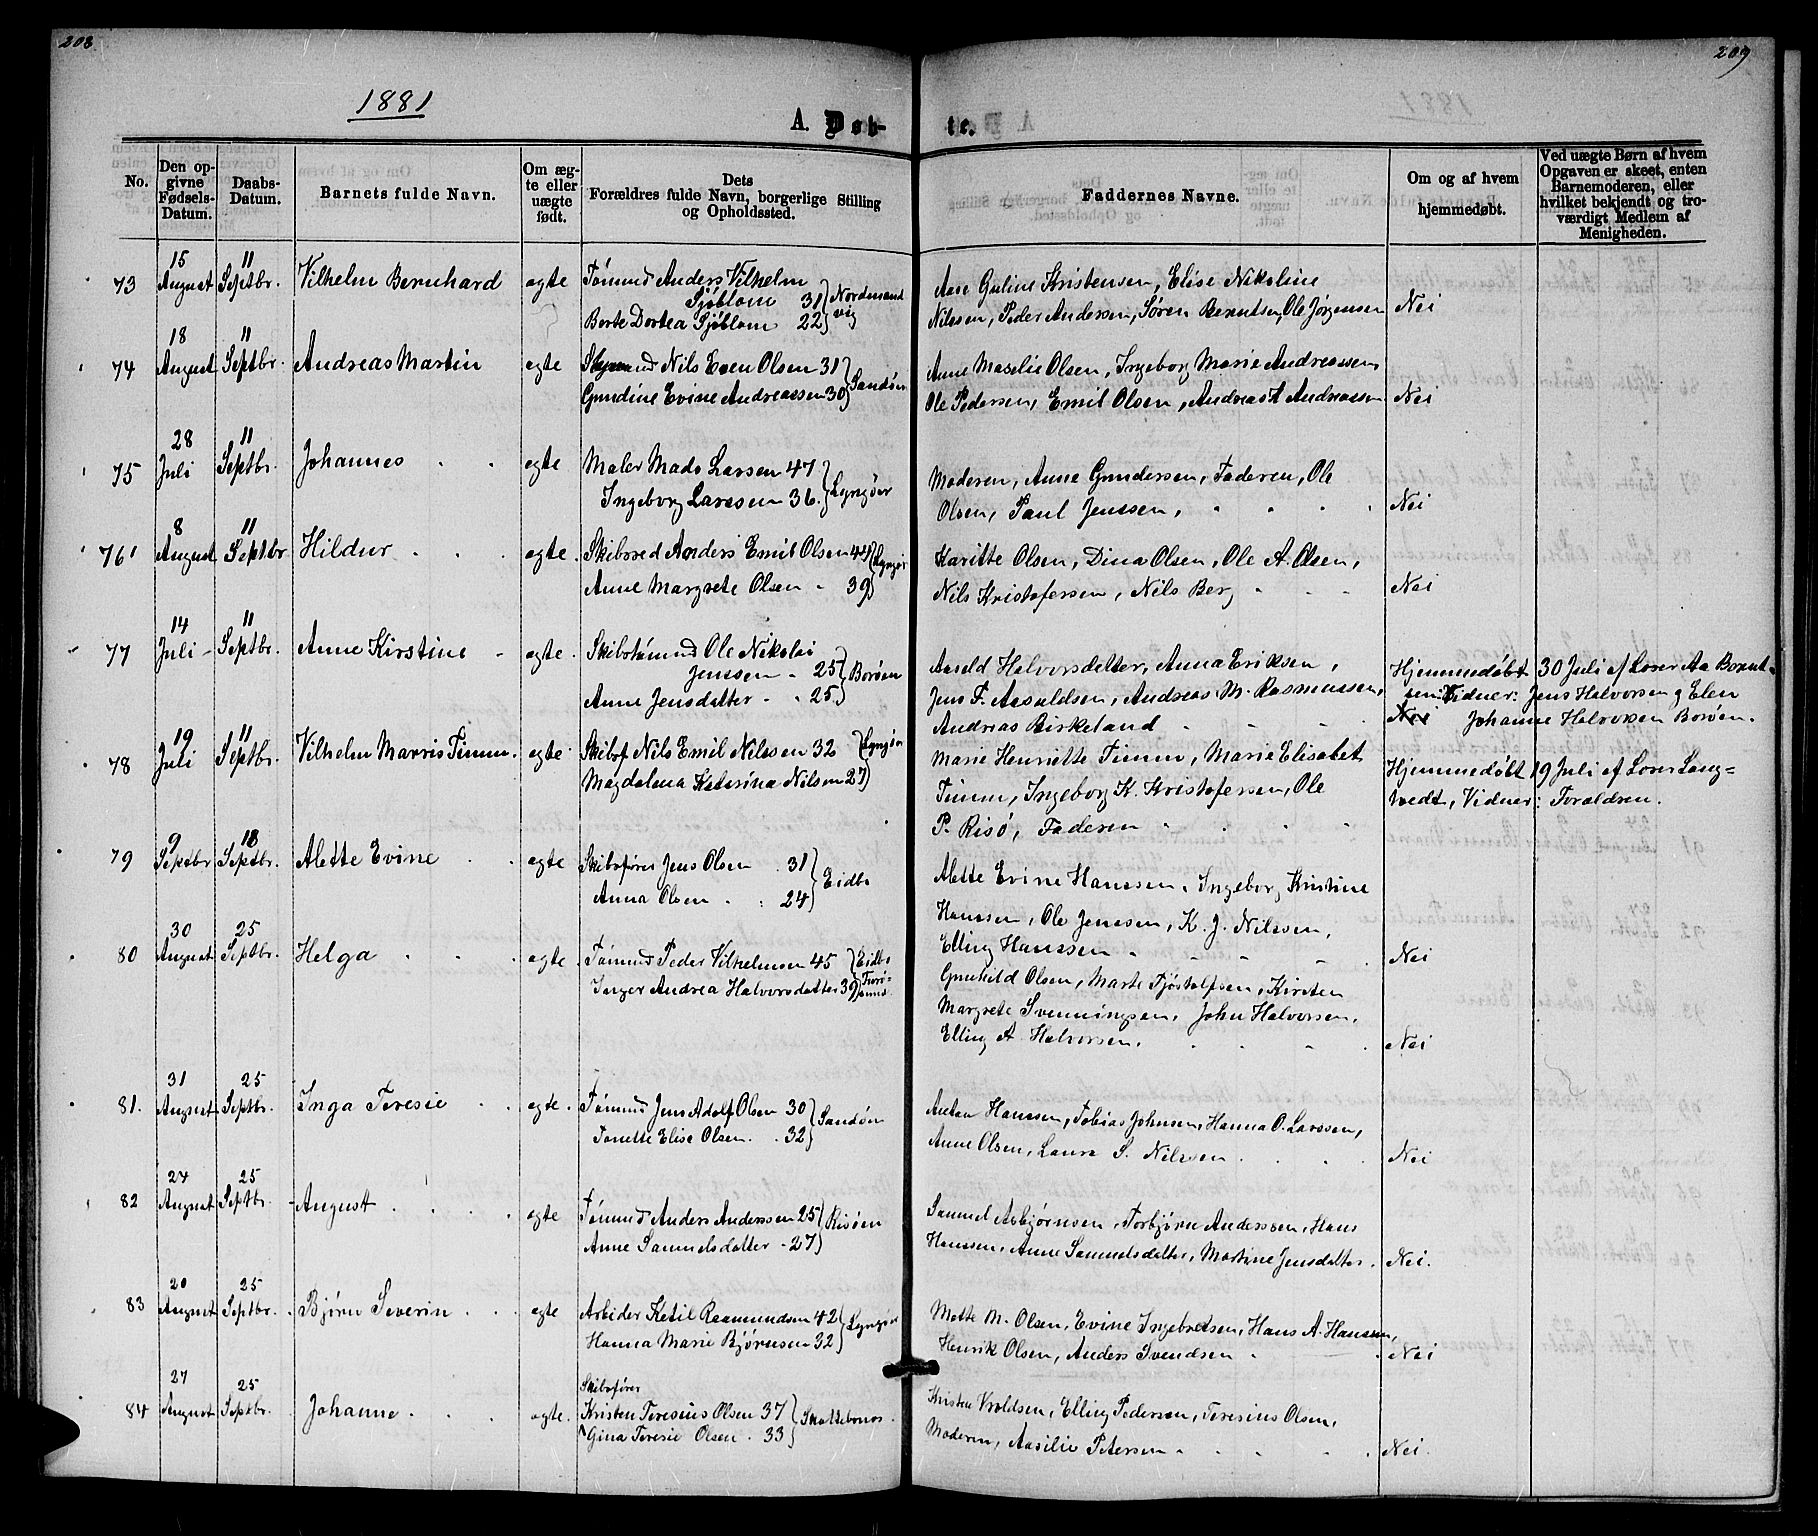 208
209
1881
A. Døb-
te.
No.
Den op-
givne
Fødsels-
Datum.
Daabs-
Datum.
Barnets fulde Navn.
Om æg-
te eller
uægte
født.
Dets
Forældres fulde Navn, borgerlige Stilling
og Opholdssted.
Faddernes Navne.
Om og af hvem
hjemmedøbt.
Ved uægte Børn af hvem
Opgaven er skeet, enten
Barnemoderen, eller
hvilket bekjendt og tro-
værdigt Medlem af
Menigheden.
73 15 August 11 Septbr. Vilhelm Bernhard ægte Tømmd Anders Vilhelm
Sjöblom 31
Berte Dortea Sjöblom 22 Nordensand
vig
Aase Guline Kristensen, Elise Nikoline
Nilssen, Peder Andersen, Søren Berntsen, Ole Jørgensen Nei
74 18 August 11 Septbr. Andreas Martin ægte Nils Even Olsen 31
Gundine Evine Andreassen 30 Sandøen
Anne Maselie Olsen, Ingeborg Marie Andreassen,
Ole Pedersen, Emil Olsen, Andreas A Andreassen Nei
75 28 Juli 11 Septbr. Johannes ægte Maler Mads Larsen 47
Ingeborg Larssen 36. Lyngøer
Moderen, Anne Gundersen, Faderen, Ole
Olsen, Paul Jenssen, Nei
76 8 August 11 Septbr Hildur ægte. Skibsred Anders Emil Olsen 42
Anne Margrete Olsen 39 Lyngør
Karitte Olsen, Dina Olsen, Ole A. Olsen,
Nils Kristofersen, Nils Berg Nei
77 14 Juli 11 Septbr. Anne Kirstine ægte. Skibstømmd Ole Nikolai
Jenssen 25
Anne Jensdatter 25. Borøen
Aasild Halvorsdatter, Anna Eriksen,
Jens F. Aasuldsen, Andreas M. Rasmussen,
Andreas Birkeland
Hjemmedøbt 30 Juli af Lærer Aa Bernt-
sen. Vidner: Jens Halvorsen g Elen
Nei Johanne Halvorsen Borøen.
78 19 Juli 11 Septbr. Vilhelm Marris Timm. ægte. Skibsf Nils Emil Nilssen 32
Magdalena Katerina Nilsen 27 Lyngør
Marie Henriette Timm, Marie Elisabet
Timm, Ingeborg K. Kristofersen, Ole
P. Risø, Faderen
Hjemmedøbt 19 Juli af Lærer Lang-
tvedt, Vidner: Forældren.
79 9 Septbr 18 Septbr. Alette Evine ægte Skibsfører Jens Olsen 31
Anna Olsen 24 Eidbo
Alette Evine Hanssen, Ingeborg Kristine
Hanssen, Ole Jenssen, K. J. Nilssen,
Elling Hanssen Nei
80 30 August 25 Septbr. Helga ægte. Tømmd Peder Vilhelmsen 45
Inger Andrea Halvorsdatter 39 Eidbo
Gunhild Olsen, Marte Tjøstolfsen, Kirsten
Margrete Svenningsen, John Halvorsen,
Elling A. Halvorsen. Nei
81. 31 August 25 Septbr. Inga Teresie ægte. Tømmd Jens Adolf Olsen 30
Tonette Elise Olsen. 32 Sandøen
Anton Hanssen, Tobias Johnsen, Hanna O. Larssen,
Anne Olsen, Laura S. Nilssen Nei
82 24 August 25 Septbr. August ægte Tømmd Anders Anderssen 25
Anne Samuelsdatter 27 Risøen
Samuel Asbjørnsen, Torbjørn Anderssen, Hans
Hanssen, Anne Samuelsdatter, Martine Jensdatter. Nei.
83 20 August 25 Septbr. Bjørn Severin ægte Arbeider Ketil Rasmundsen 42
Hanna Marie Bjørnsen 32 Lyngør
Mette M. Olsen, Evine Ingebretsen, Hans A. Hanssen,
Henrik Olsen, Anders Svendsen Nei
84 27 August 25 Septbr. Johanne ægte. Skibsfører
Kristen Teresius Olsen 37
Gina Teresie Olsen 33
Kristen Vroldsen, Elling Pedersen, Teresius Olsen,
Moderen, Aasilie Petersen Nei.